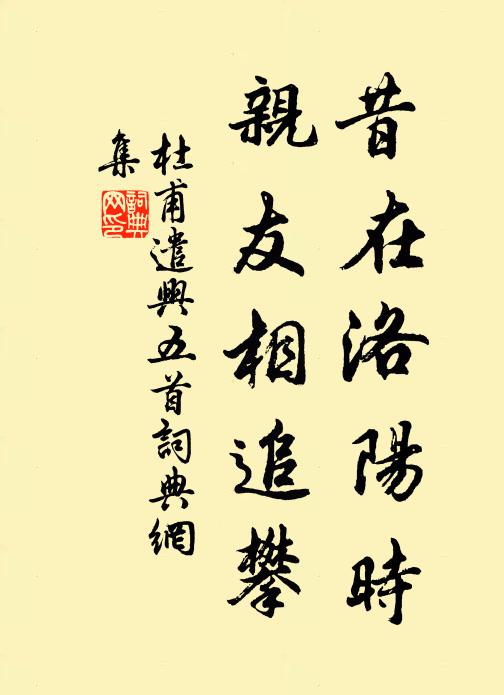 昔在洛陽時
親友相追攀
杜甫遣興五首詞典網
集
詞典
网印